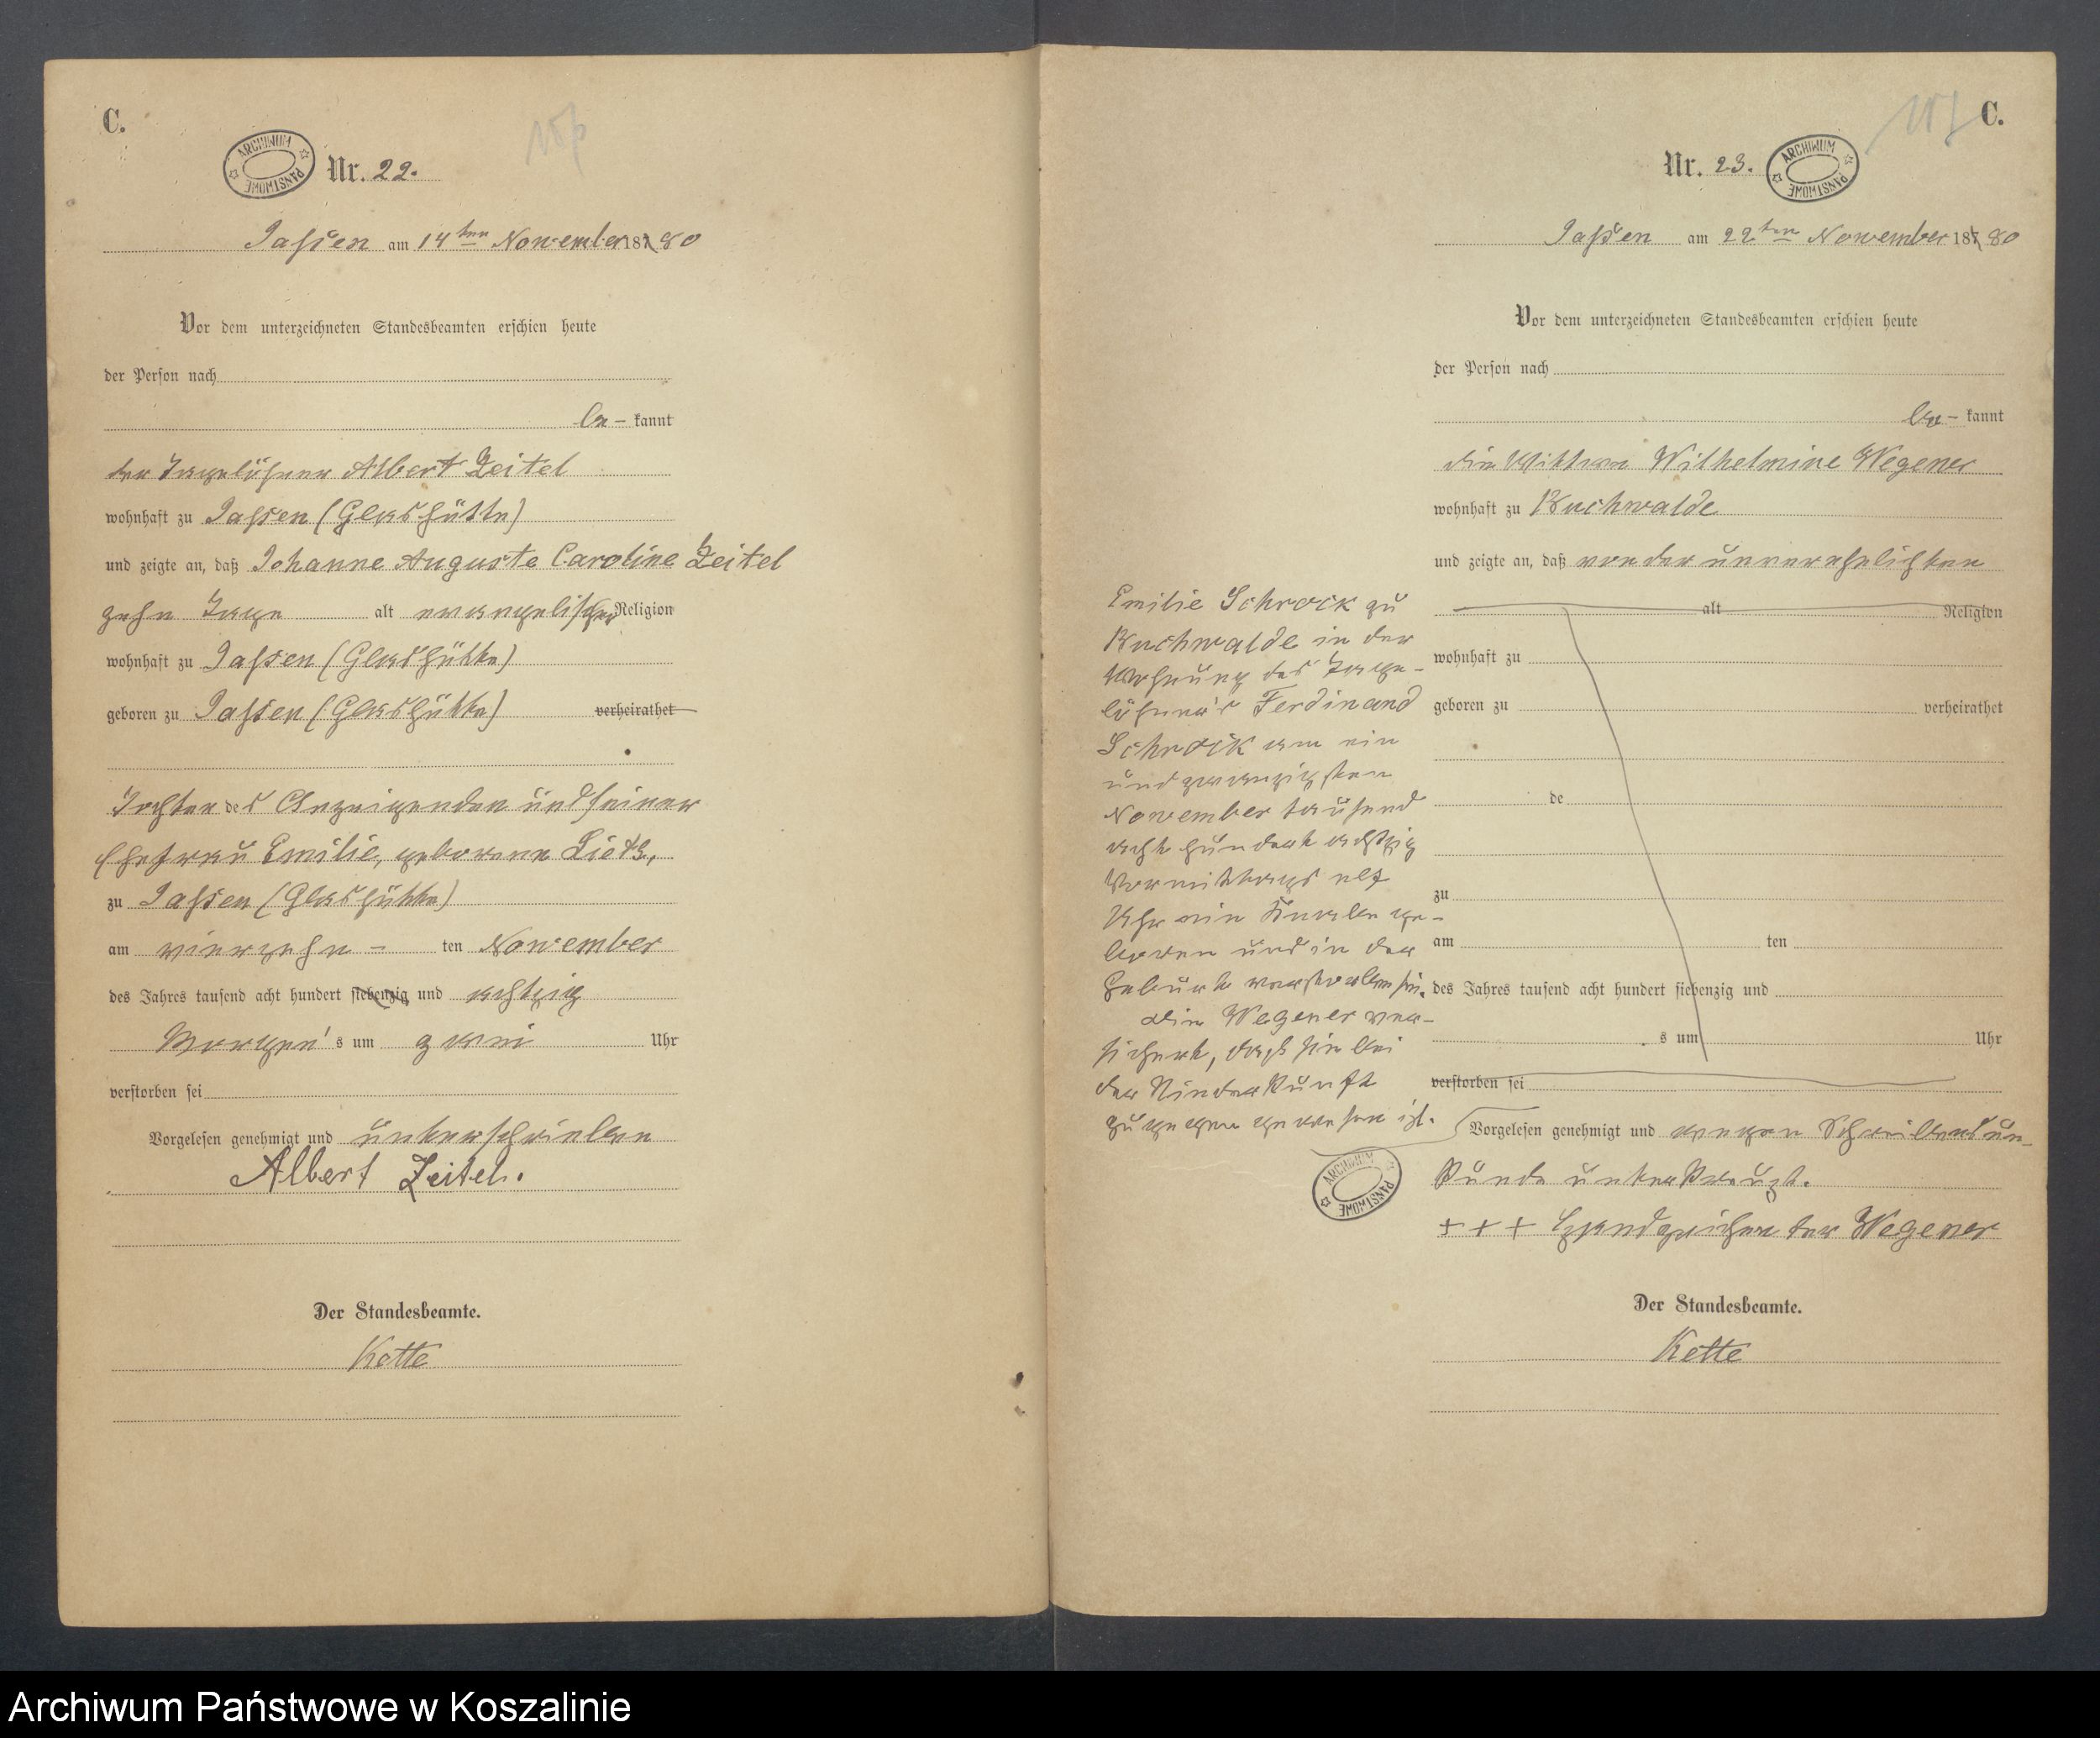 C.
ARCHIWUM PAŃSTWOWE
Nr. 22.
Jassen am 14ten November 187 80
Vor dem unterzeichneten Standesbeamten erschien heute
der Person nach
be- kannt
der Tagelöhner Albert Zeitel
wohnhaft zu Jassen (Glashütte)
und zeigte an, daß Johanne Auguste Caroline Zeitel
zehn Tage alt evangelischer Religion
wohnhaft zu Jassen (Glashütte)
geboren zu Jassen (Glashütte) verheirathet
Tochter des Anzeigenden und seiner
Ehefrau Emilie, geborene Lietz,
zu Jassen (Glashütte)
am vierzehn - ten November
des Jahres tausend acht hundert siebenzig und achtzig
Morgen's s um zwei Uhr
verstorben sei
Vorgelesen genehmigt und unterschrieben
Albert Zeitel.
Der Standesbeamte.
Kette
C.
Nr. 23.
ARCHIWUM PAŃSTWOWE
Jassen am 22ten November 187 80
Vor dem unterzeichneten Standesbeamten erschien heute
der Person nach
be- kannt
die Wittwe Wilhelmine Wegener
wohnhaft zu Buchwalde
und zeigte an, daß von der unverehelichten
Emilie Schrock zu
Buchwalde in der
Wohnung des Tage-
löhner's Ferdinand
Schrock am ein
und zwanzigsten
November tausend
acht hundert achtzig
Vormittags elf
Uhr ein Knabe ge-
boren und in der
Geburt verstorben sei.
Die Wegener ver-
sichert, daß sie bei
der Niederkunft
zugegen gewesen ist.
alt Religion
wohnhaft zu
geboren zu verheirathet
de
zu
am ten
des Jahres tausend acht hundert siebenzig und
s um Uhr
verstorben sei
Vorgelesen genehmigt und wegen Schreibensun-
kunde unterkreuzt.
+++ Handzeichen der Wegener
ARCHIWUM PAŃSTWOWE
Der Standesbeamte.
Kette
Archiwum Państwowe w Koszalinie